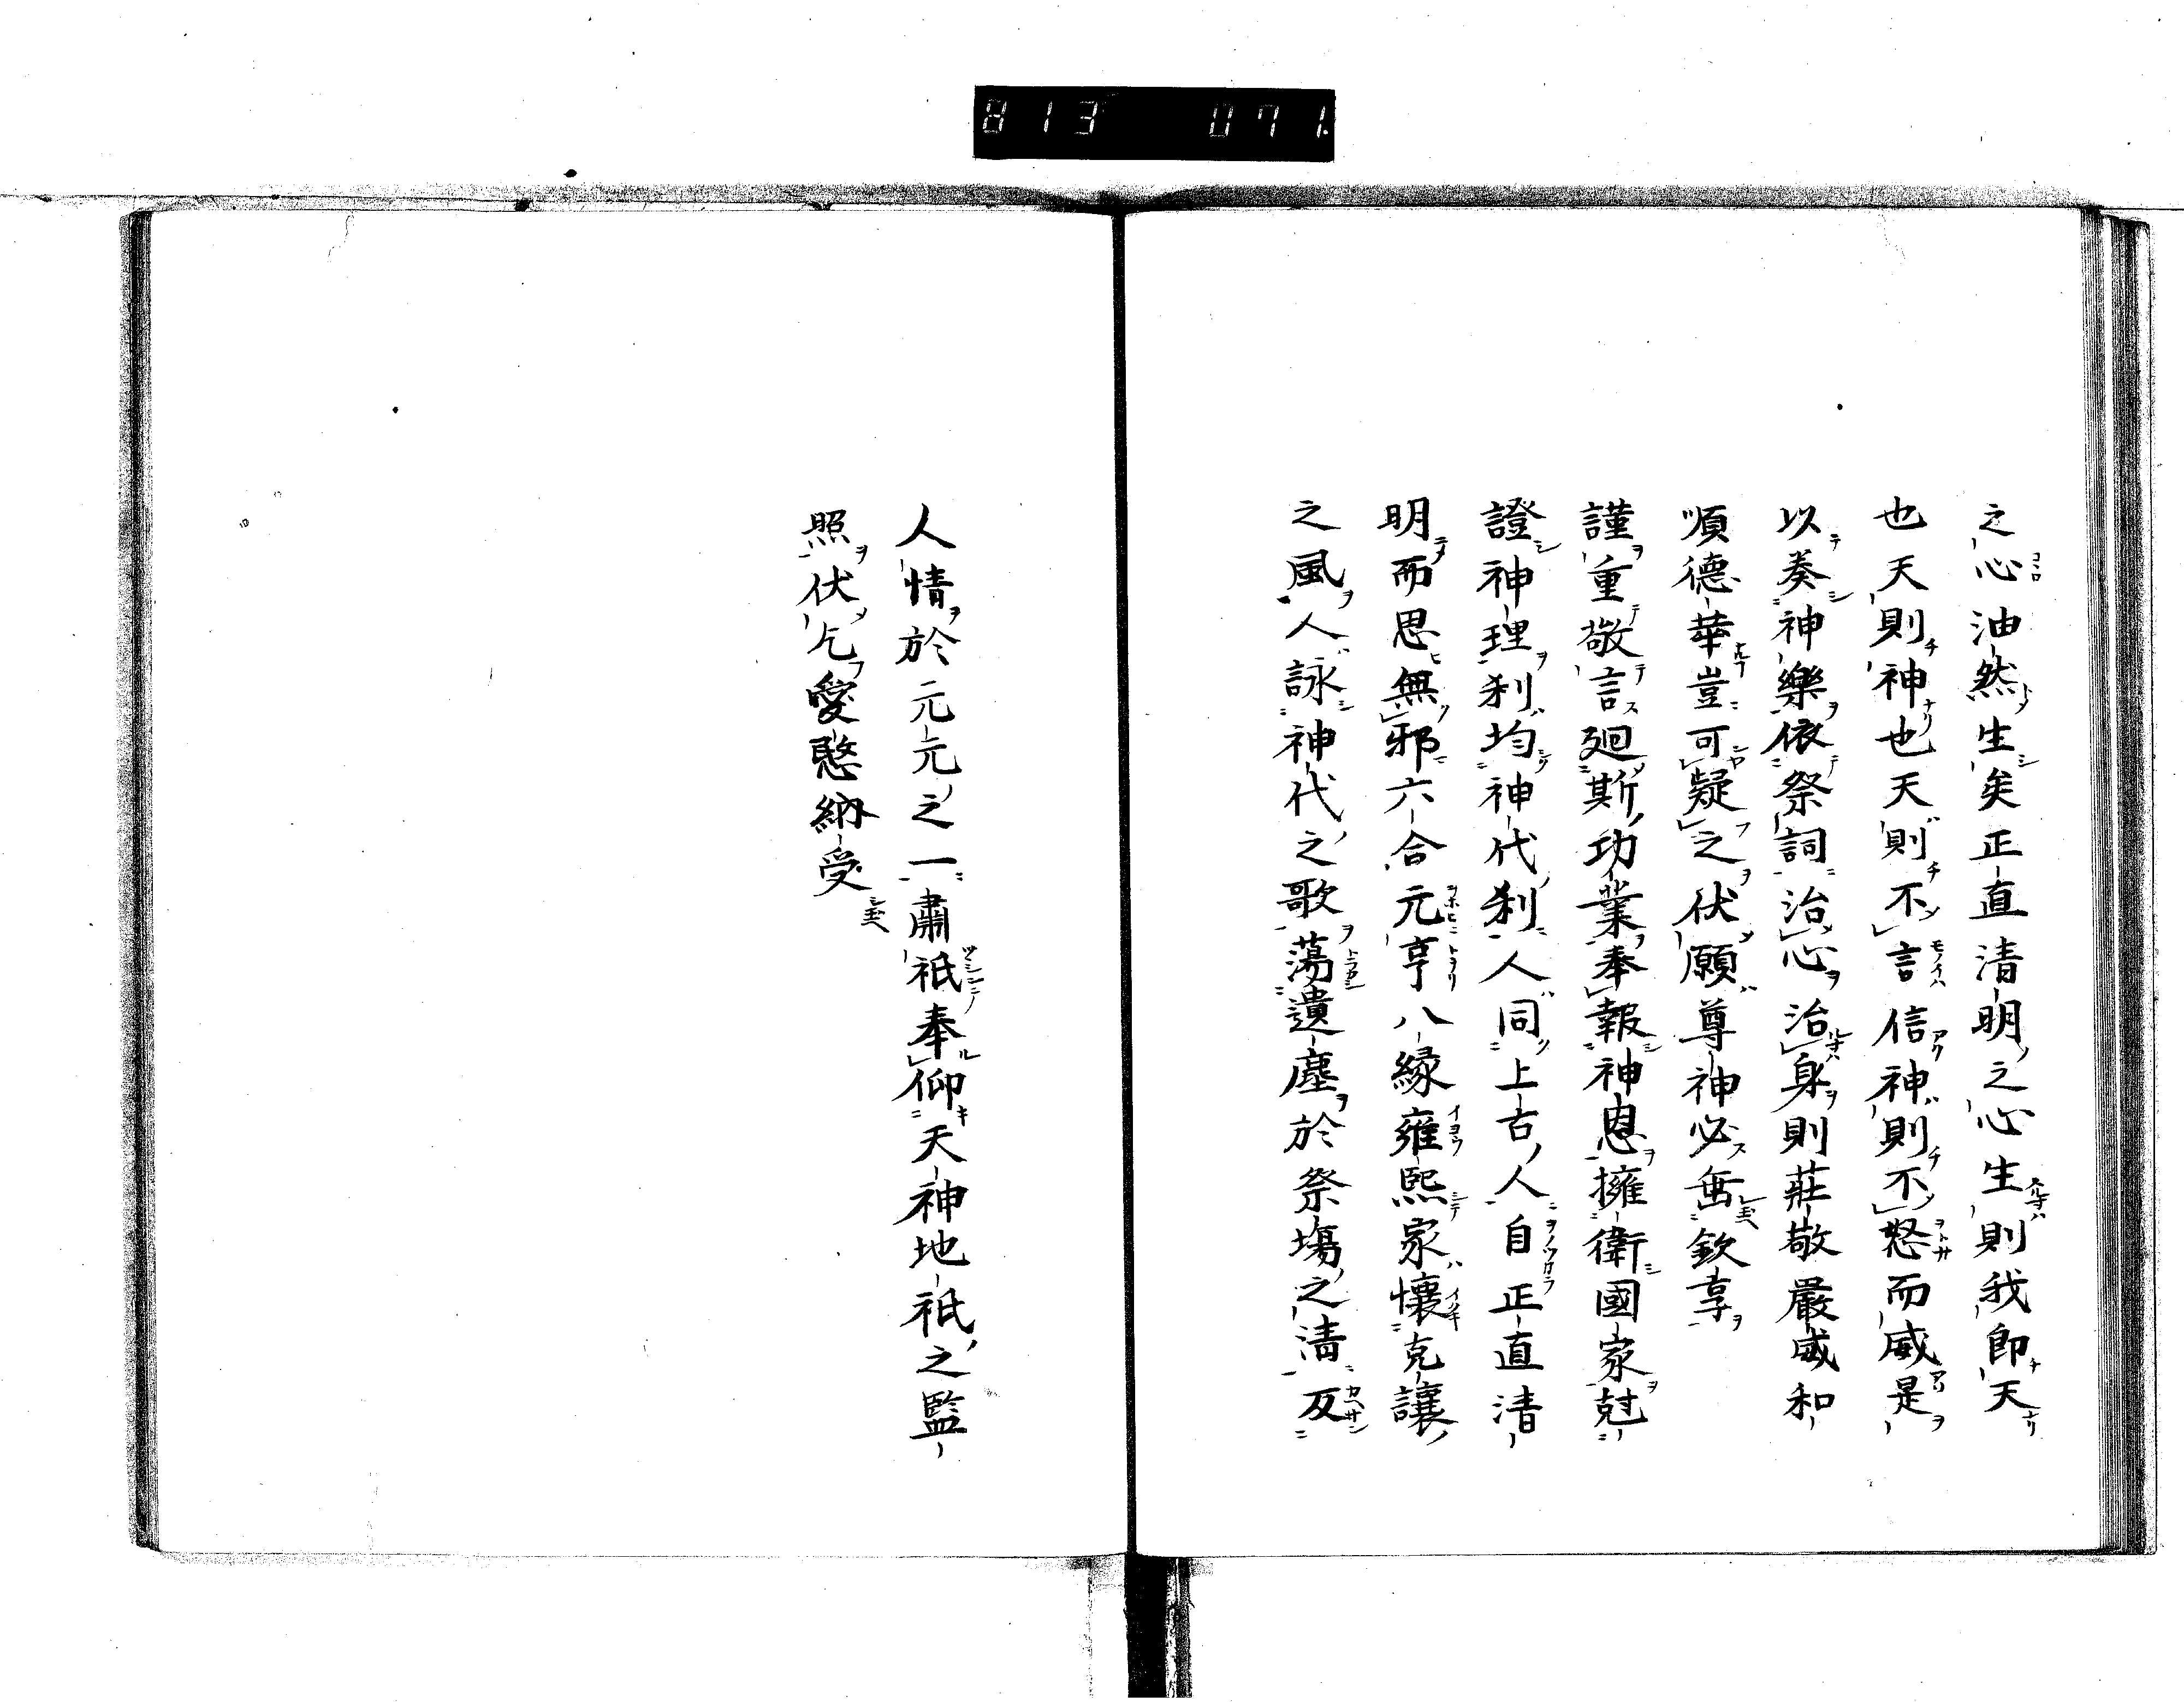 813 071
之心油然生矣正直清明之心生則我即天
也天則神也天則不言信神則不怒而威是
以奏神樂依祭詞治心治身則莊敬嚴威和
順德華豈可疑之伏願尊神必垂欽享
謹重敬言廻斯功業奉報神恩擁衛國家尅
證神理刹均神代刹人同上古人自正直清
明而思無邪六合元亨八緣雍熙家懷克讓
之風人詠神代之歌蕩遺塵於祭場之清反
人情於元元之一肅祇奉仰天神地祇之監
照伏乞愛愍納受